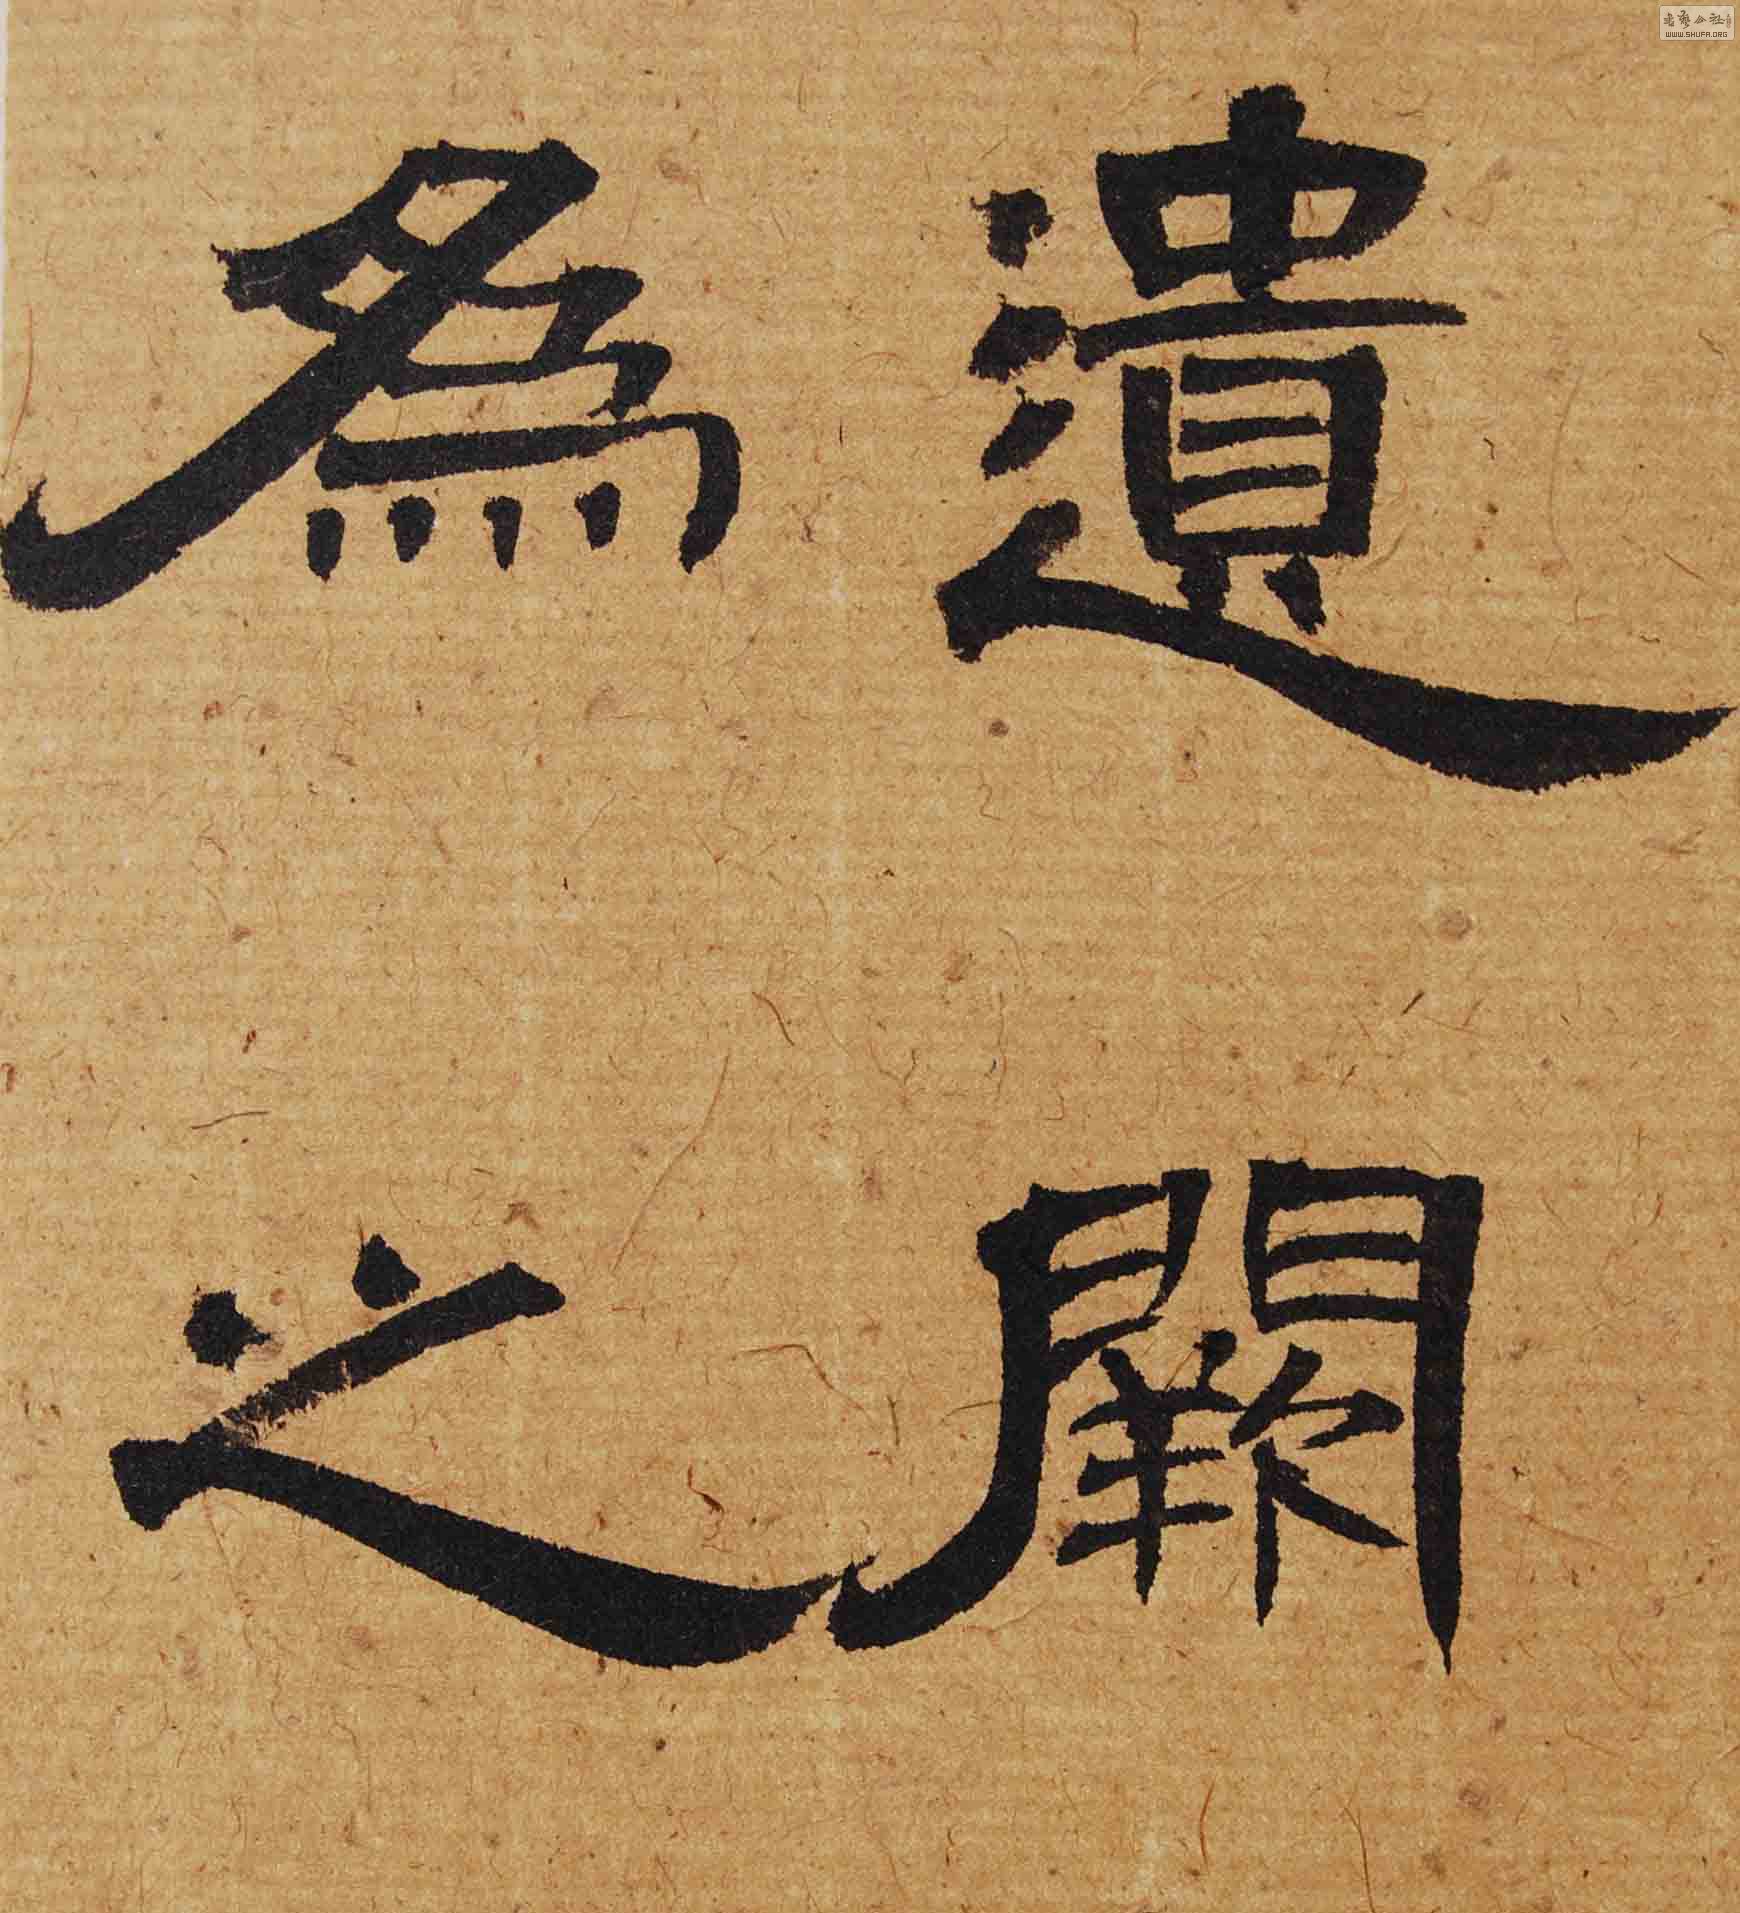 遺闕
為之
書藝公社
WWW.SHUFA.ORG